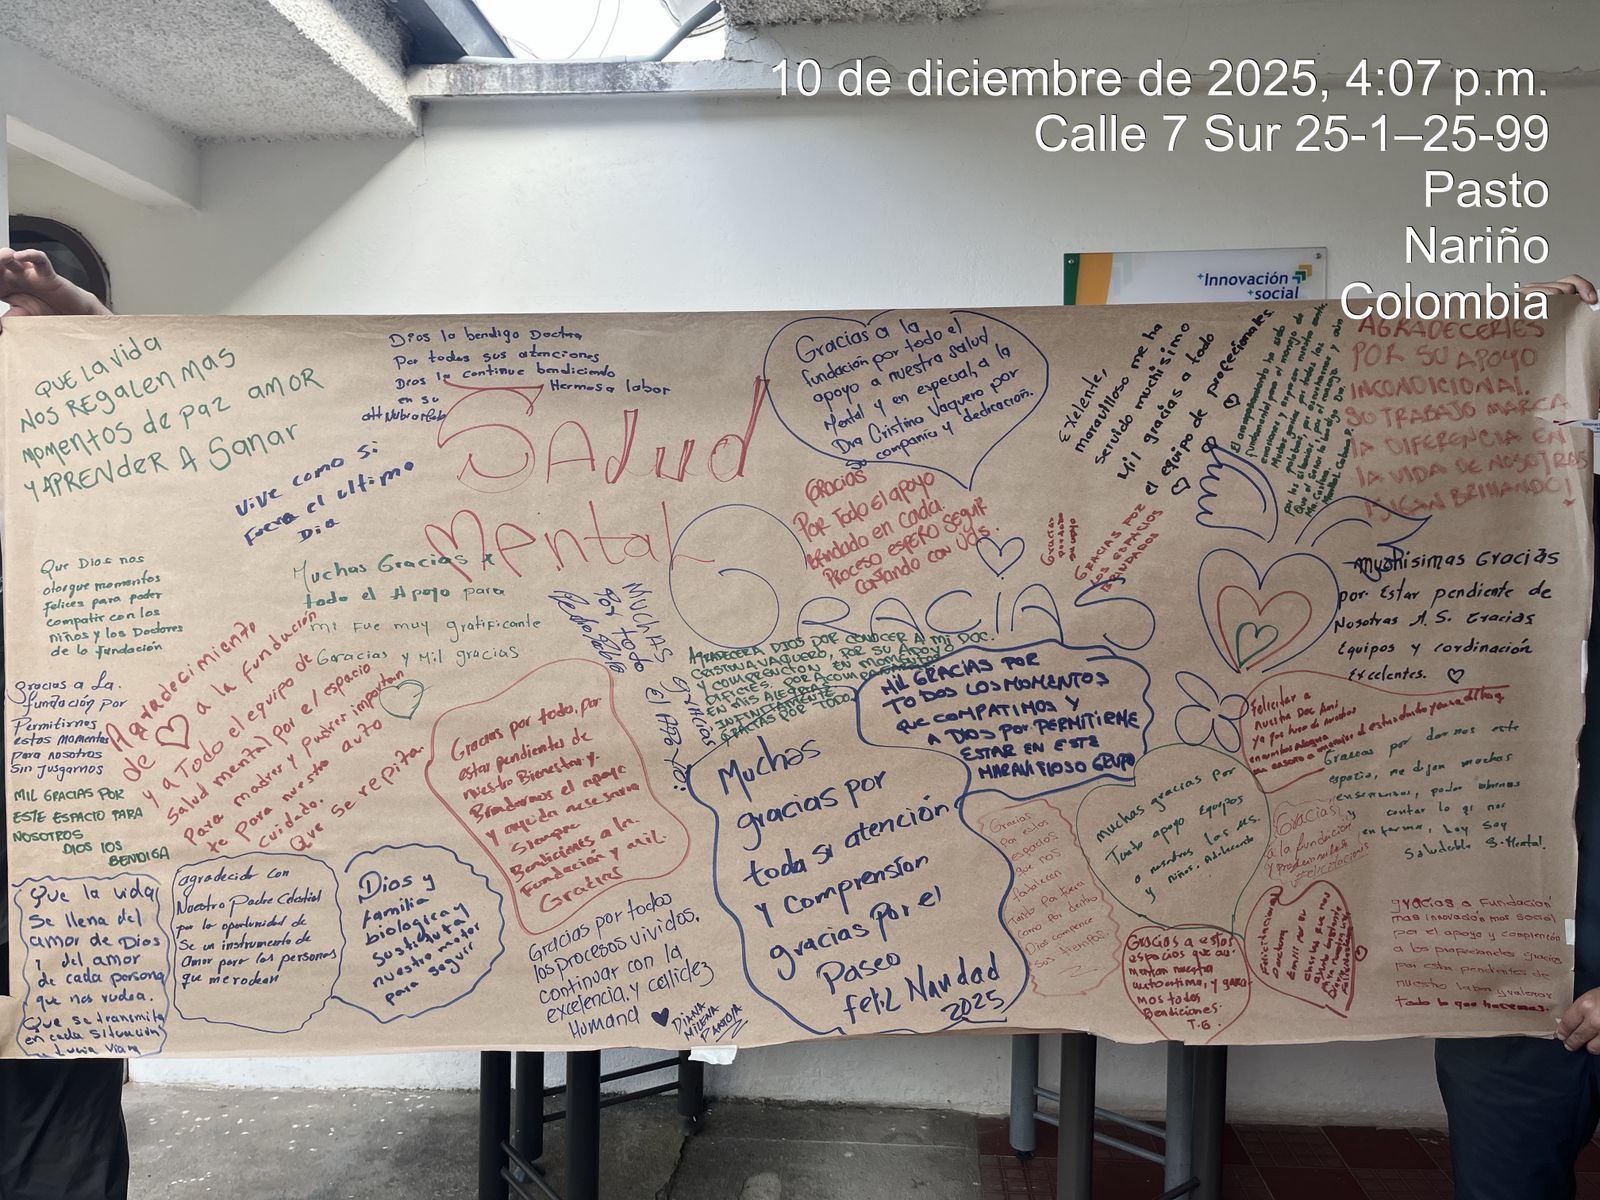 10 de diciembre de 2025, 4:07 p.m.
Calle 7 Sur 25-1–25-99
Pasto
Nariño
Colombia
+Innovación
+social
QUE LA VIDA
NOS REGALEN MAS
MOMENTOS DE PAZ AMOR
Y APRENDER A SANAR
Dios la bendigo Doctora
Por todas sus atenciones
Dios la continue bendiciendo
en su Hermosa labor
Vive como si
Fuera el ultimo
Dia
SALud
MENtAL
GRACIAS
Gracias a la
fundación por todo el
apoyo a nuestra salud
Mental y en especial, a la
Dra Cristina Vaquero por
su compania y dedicación.
GRACIAS
POR TODO EL APOYO
brindado en cada
Proceso ESPERO SEGUIR
CONTANDO CON UDS.
Exelente,
maravilloso me ha
servido muchisimo
Mil gracias a todo
el equipo de profecionales.
Gracias
por todo
su apoyo
GRACIAS POR
LOS ESPACIOS
BRINDADOS
AGRADECERLES
POR SU APOYO
INCONDICIONAL.
SU TRABAJO MARCA
LA DIFERENCIA EN
LA VIDA DE NOSOTRAS
¡SIGAN BRILLANDO!
Que Dios nos
otorgue momentos
felices para poder
compatir con los
niños y los Doctores
de la fundación
Muchas Gracias x
todo el Apoyo para
mi fue muy gratificante
Garacias y Mil gracias
MUCHAS gracias
Por todo El APOYO:
AGRADECER A DIOS POR CONOCER A MI DOC.
CRISTINA VAQUERO, POR SU APOYO
Y COMPRENCION EN MOMENTOS
EN MIS ALEGRIAS
INFINITAMENTE
GRACIAS POR TODO.
MIL GRACIAS POR
TODOS LOS MOMENTOS
QUE COMPATIMOS Y
A DIOS POR PERMITIRME
ESTAR EN ESTE
MARAVILLOSO GRUPO
Muchisimas Gracias
por Estar pendiente de
Nosotras M.S. Gracias
Equipos y cordinación
Excelentes.
gracias a La.
fundación por
Permitirnos
estos momentos
para nosotros
Sin jusgarnos
MIL GRACIAS POR
ESTE ESPACIO PARA
NOSOTROS
DIOS LOS
BENDIGA
Agradecimiento
de a la Fundución
y a Todo el equipo de
Salud mental por el espacio
Para madrer y padrer importan
te Para nuestro auto
cuidado.
Que se repita.
Gracias por todo, por
estar pendientes de
nuestro Bienestar y.
Brindarnos el apoyo
y ayuda necesaria
Siempre
Bendiciones a la.
Fundación y mil.
Gracias
Muchas
gracias por
toda su atención
y comprension
gracias por el
Paseo
feliz Navidad
2025
Felicitar a
nuestra Doc Ami
Gracias por darnos este
espacio, me dejan muchas
enseñansas, poder obtener
Saludable S. Mental.
muchas gracias por
Tanto apoyo Equipos
a nosotras las M.S.
y niños.
Gracias
Por estos
espacios
que nos
fortalecen
Tanto Por fuera
como Por dentro
Dios compense
sus tiempos.
Gracias
a la fundación
y profesionales
Felicitaciones
Que la vida
Se llena del
amor de Dios
y del amor
de cada persona
que nos rodea.
Que se transmita
en cada situación
Lucia Viana
agradecida con
Nuestro Padre Celestial
por la oportunidad de
Se un instrumento de
Amor para las personas
que merodean
Dios y
familia
biologica y
Sustituta
nuestro motor
para seguir
Gracias por todos
los procesos vividos.
continuar con la
excelencia. y calidez
Humana
DIANA
MILENA
PANTOJA
Gracias a estos
espacios que au-
mentan nuestra
autoestima, y gana-
mos todos
Bendiciones.
T.G.
gracias a Fundación
mas innovación mas social
por el apoyo y comprención
a los profesionales gracias
por estar pendientes de
nuestro labor y valorar
todo lo que hacemos.